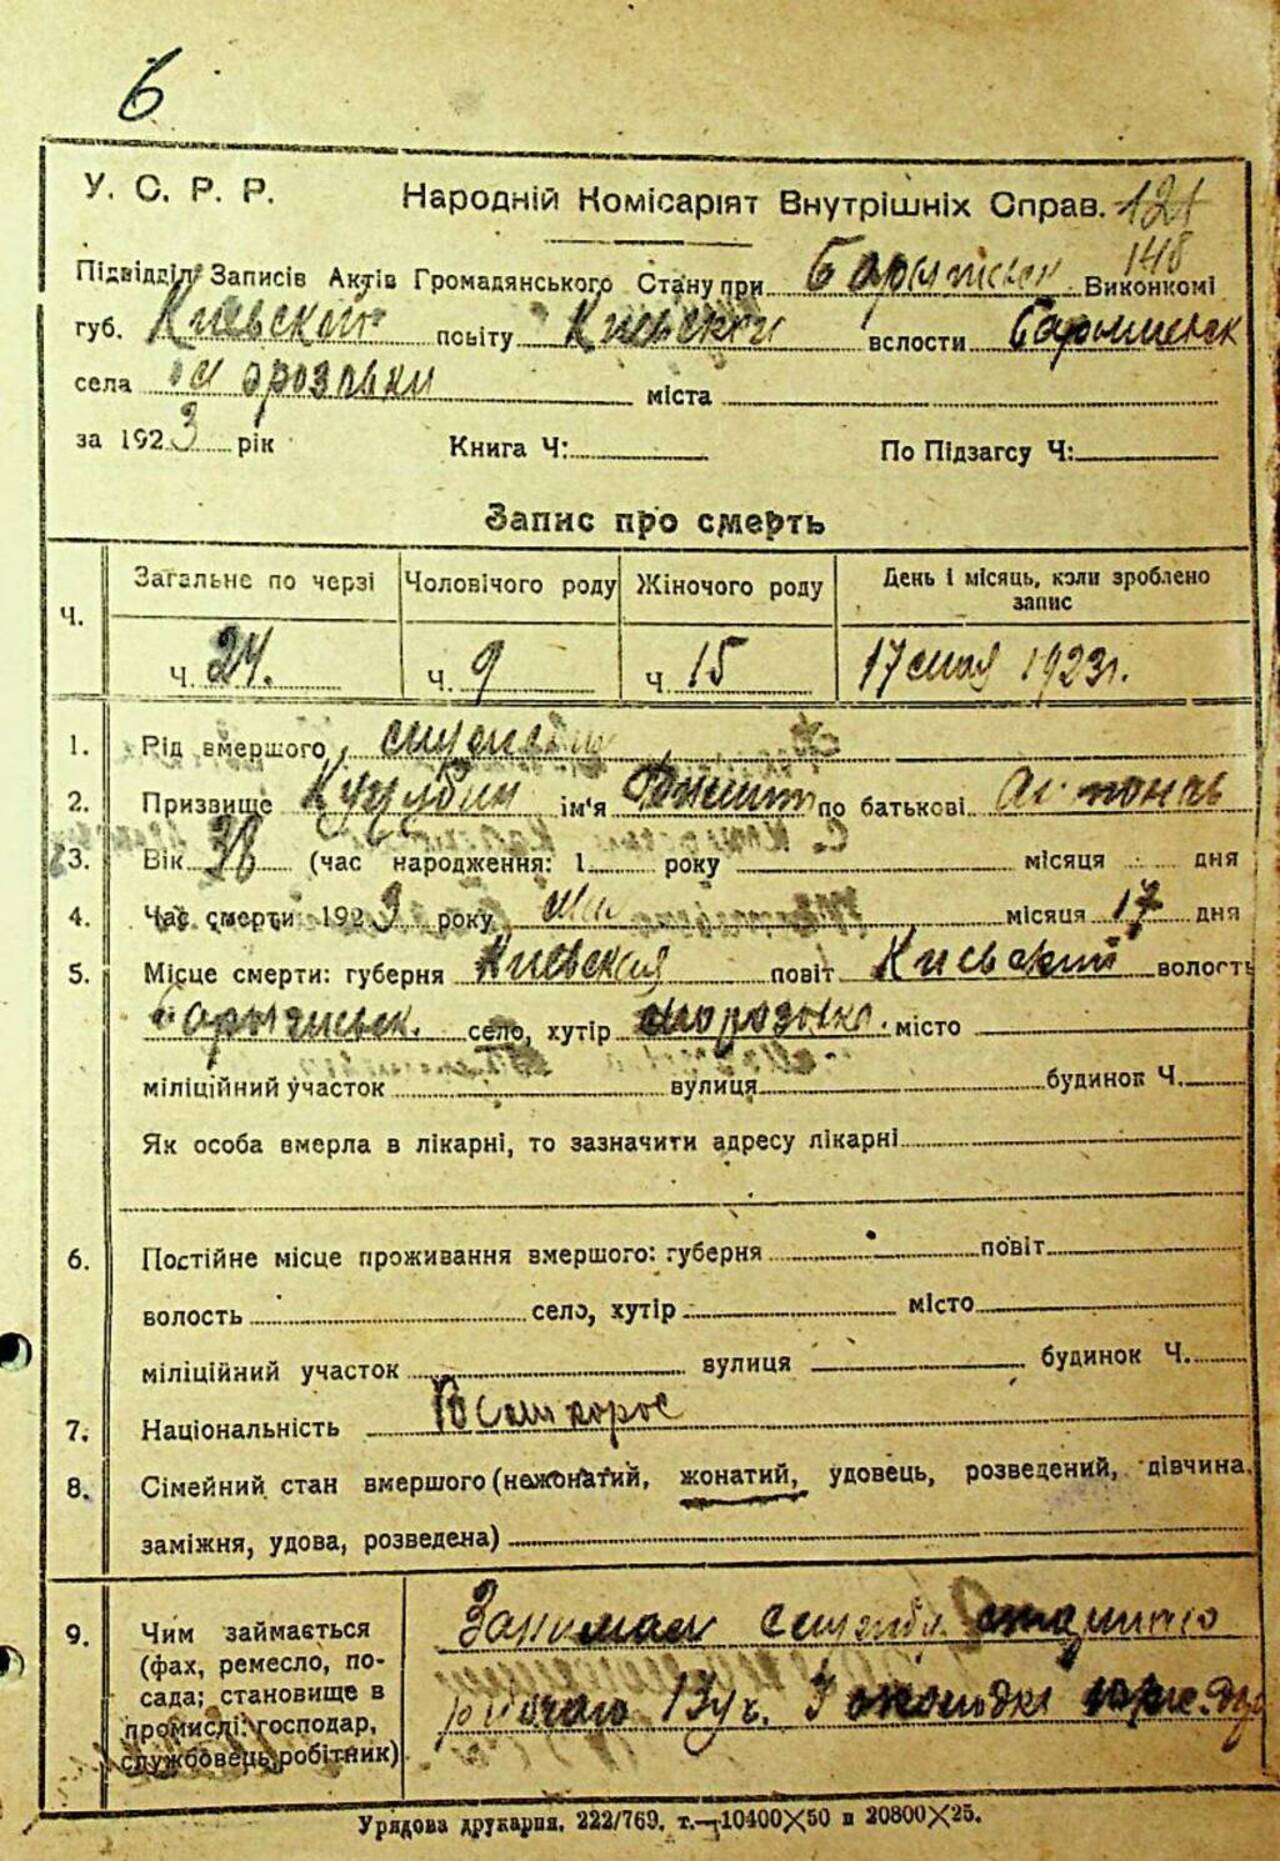 6
У. С. Р. Р. Народній Комісаріят Внутрішніх Справ. 121
148
Підвідділ Записів Актів Громадянського Стану при Барышевск Виконкомі
губ. Киевской повіту Киевской вслости Барышевск
села Морозовки міста
за 1923 рік Книга Ч: По Підзагсу Ч:
Запис про смерть
Загальне по черзі Чоловічого роду Жіночого роду День і місяць, коли зроблено запис
Ч. Ч. 24. Ч. 9 Ч. 15 17 мая 1923г.
1. Рід вмершого
2. Призвище ім'я по батькові
3. Вік 38 (час народження: 1 року місяця дня
4. Час смерти 1923 року Мая місяця 17 дня
5. Місце смерти: губерня Киевская повіт Киевский волость
Барышевск. село, хутір Морозовка. місто
міліційний участок вулиця будинок Ч.
Як особа вмерла в лікарні, то зазначити адресу лікарні
6. Постійне місце проживання вмершого: губерня повіт
волость село, хутір місто
міліційний участок вулиця будинок Ч.
7. Національність
8. Сімейний стан вмершого (нежонатий, жонатий, удовець, розведений, дівчина,
заміжня, удова, розведена)
9. Чим займається
(фах, ремесло, по-
сада; становище в
промислі: господар,
службовець, робітник)
Занимал служба старшаго
рабочаго
Урядова друкарня. 222/769. т.—10400×50 и 20800×25.